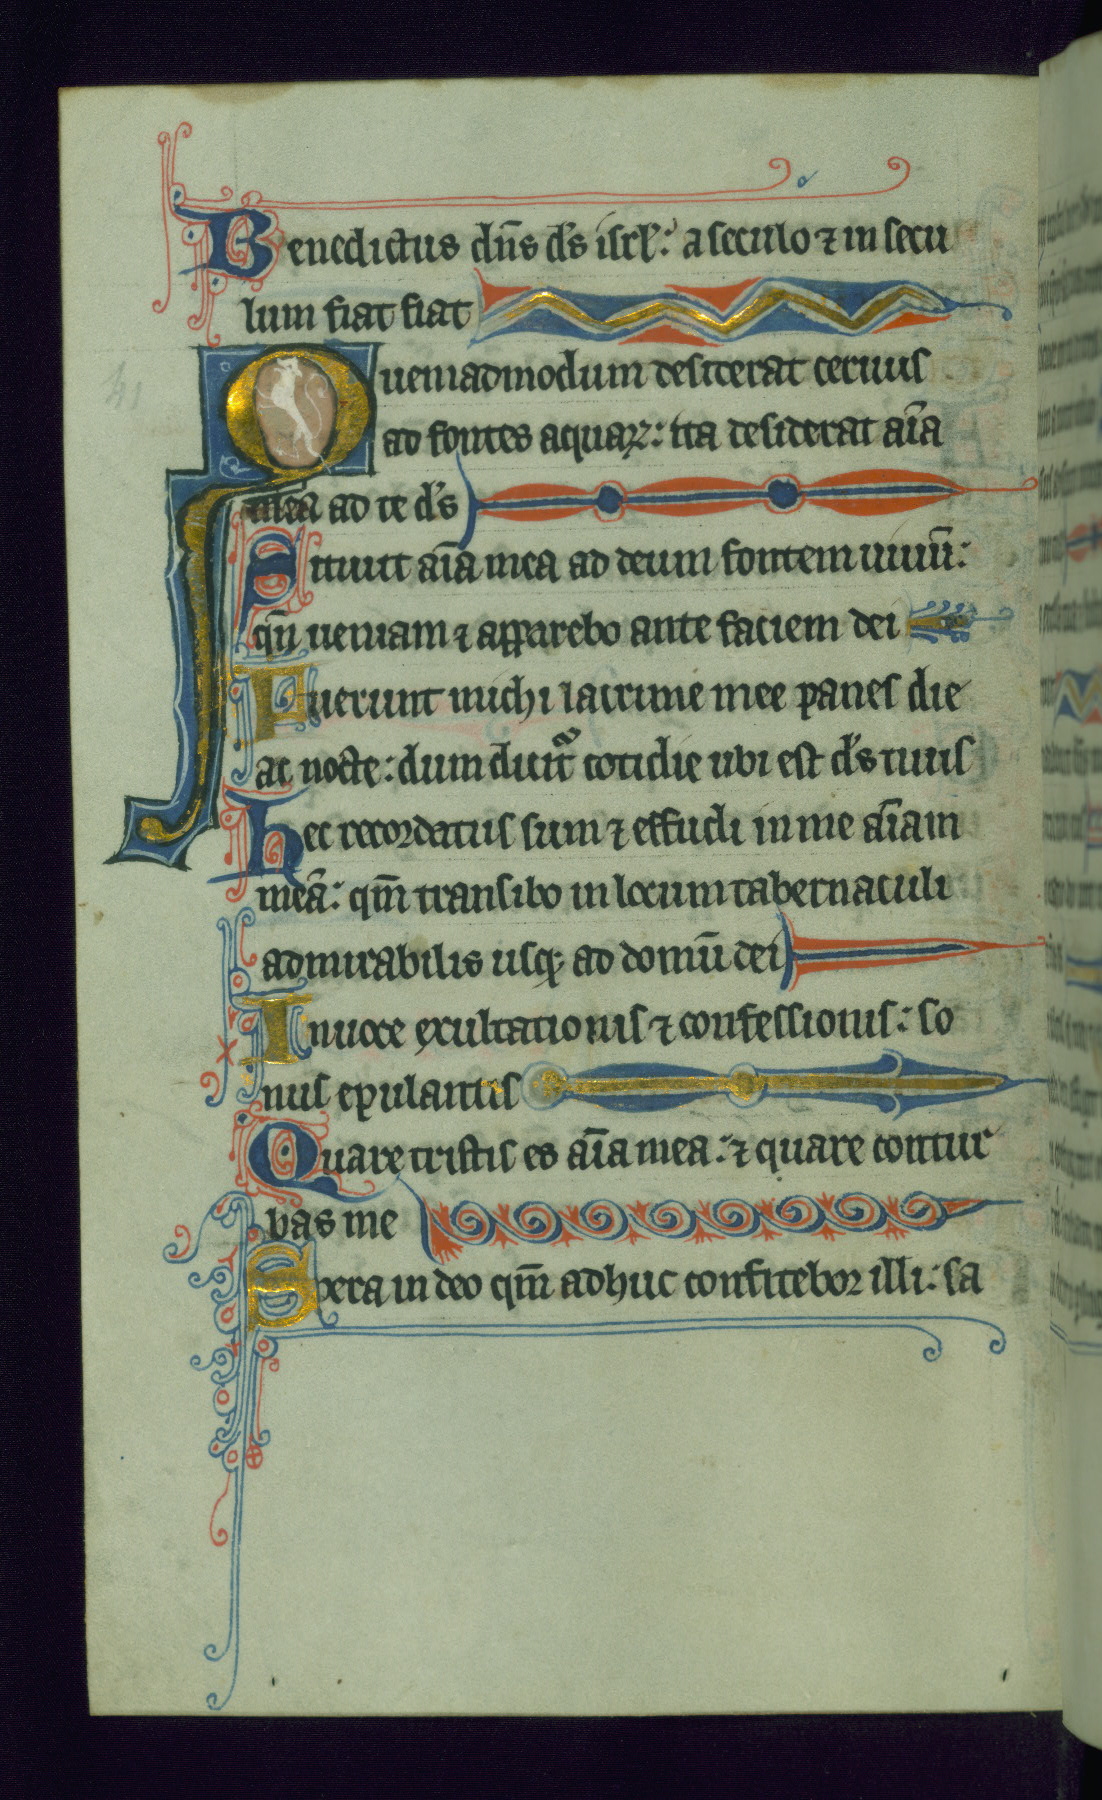 Benedictus dn̄s ds̄ isrl̄: a seculo ⁊ in secu
lum fiat fiat
Quemadmodum desiterat ceruus
ad fontes aquaꝝ: ita desiderat aīa
mea ad te ds̄
Sitiuit aīa mea ad deum fontem uiuū:
qn̄ ueniam ⁊ apparebo ante faciem dei
Fuerunt michi lacrime mee panes die
ac nocte: dum dicit᷑ cotidie ubi est ds̄ tuus
Hec recordatus sum ⁊ effudi in me aīam
meā: qm̄ transibo in locum tabernaculi
admirabilis usqꝫ ad domū dei
In uoce exultationis ⁊ confessionis: so
nus epulantis
Quare tristis es aīa mea: ⁊ quare contur
bas me
Spera in deo qm̄ adhuc confitebor illi: sa